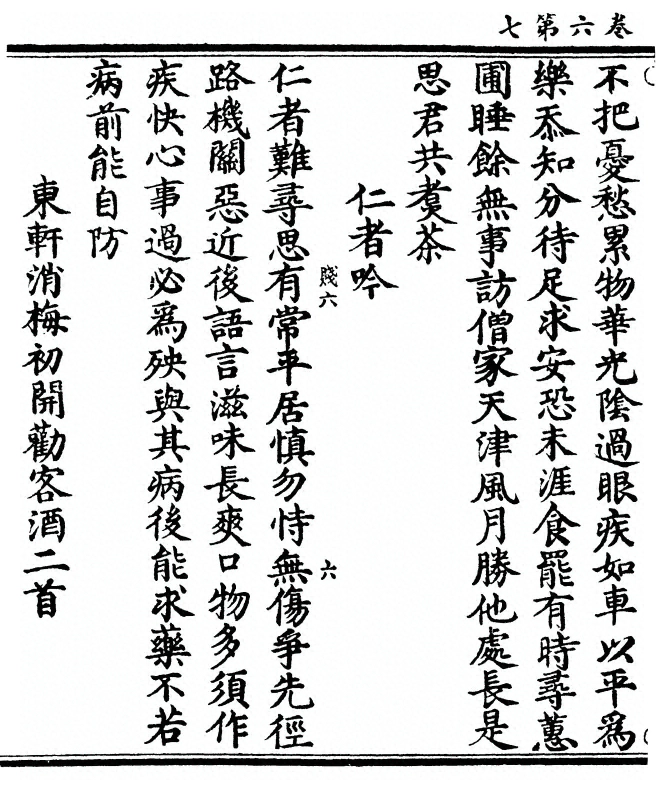 卷六第七
不把憂愁累物華光陰過眼疾如車以平爲
樂忝知分待足求安恐未涯食罷有時尋蕙
圃睡餘無事訪僧家天津風月勝他處長是
思君共煑茶
仁者吟
賤六
六
仁者難尋思有常平居慎勿恃無傷爭先徑
路機關惡近後語言滋味長爽口物多須作
疾快心事過必爲殃與其病後能求藥不若
病前能自防
東軒消梅初開勸客酒二首